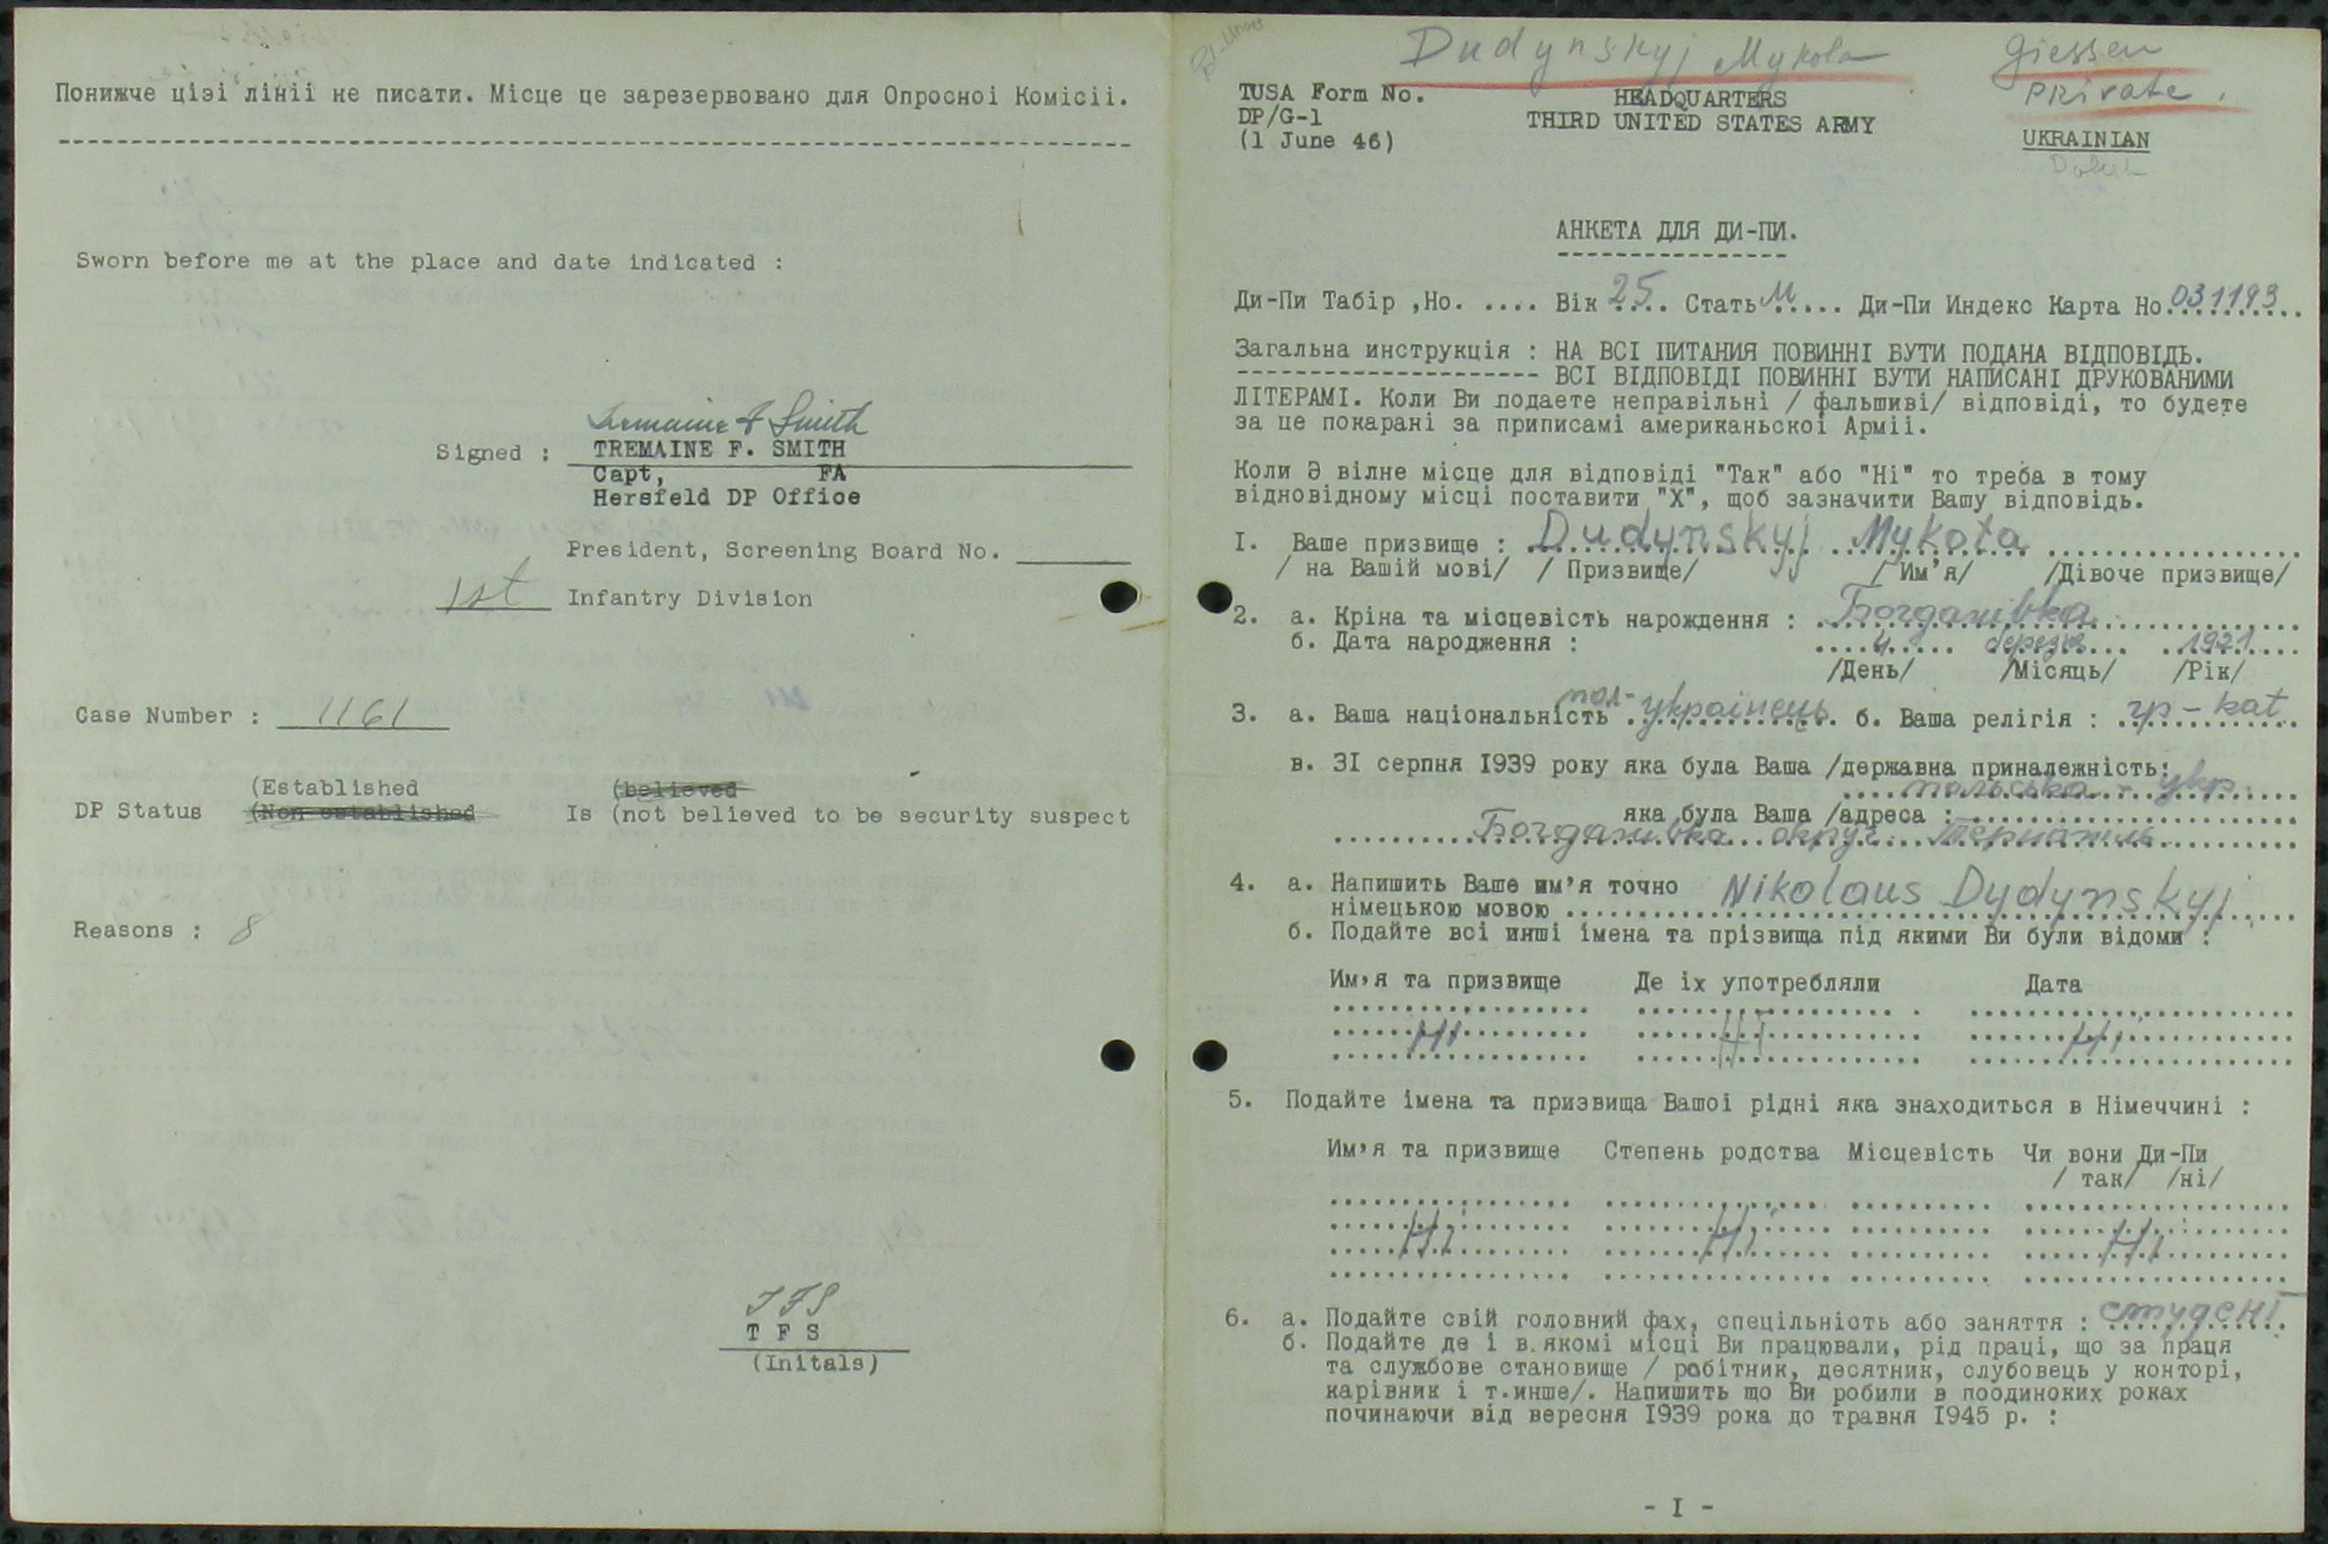 Понижче цізі лініі не писати. Місце це зарезервовано для Опросноі Комісіі.
Sworn before me at the place and date indicated :
Tremaine F Smith
Signed : TREMAINE F. SMITH
Capt, FA
Hersfeld DP Office
President, Screening Board No.
1st Infantry Division
Case Number : 1161
(Established (believed
DP Status (Non established Is (not believed to be security suspect
Reasons : 8
TFS
T F S
(Initals)
Dudynskyj Mykola Giessen
Private.
TUSA Form No. HEADQUARTERS
DP/G-1 THIRD UNITED STATES ARMY
(1 June 46) UKRAINIAN
АНКЕТА ДЛЯ ДИ-ПИ.
Ди-Пи Табір ,Но. .... Вік 25 Стать М ..... Ди-Пи Индекс Карта Но 031193
Загальна инструкція : НА ВСІ ПИТАНИЯ ПОВИННІ БУТИ ПОДАНА ВІДПОВІДЬ.
ВСІ ВІДПОВІДІ ПОВИННІ БУТИ НАПИСАНІ ДРУКОВАНИМИ
ЛІТЕРАМІ. Коли Ви подаете неправільні / фальшиві/ відповіді, то будете
за це покарані за приписамі американьскоі Арміі.
Коли Э вілне місце для відповіді "Так" або "Ні" то треба в тому
відновідному місці поставити "X", щоб зазначити Вашу відповідь.
I. Ваше призвище : Dudynskyj Mykoła
/ на Вашій мові/ / Призвище/ / Им'я/ /Дівоче призвище/
2. а. Кріна та місцевість нарождення : Богданівка
б. Дата народження : 4 березня 1921
/День/ /Місяць/ /Рік/
3. а. Ваша національність пол-українець б. Ваша релігія : гр-кат
в. 3I серпня I939 року яка була Ваша /державна приналежність:
польська - укр.
яка була Ваша /адреса :
Богданівка округ Тернопіль
4. а. Напишить Ваше им'я точно Nikolaus Dydynskyj
німецькою мовою
б. Подайте всі инші імена та прізвища під якими Ви були відоми :
Им,я та призвище Де іх употребляли Дата
Ні Ні Ні
5. Подайте імена та призвища Вашоі рідні яка знаходиться в Німеччині :
Им,я та призвище Степень родства Місцевість Чи вони Ди-Пи
/ так/ /ні/
Ні Ні Ні
6. а. Подайте свій головний фах, спецільність або заняття : студент
б. Подайте де і в якомі місці Ви працювали, рід праці, що за праця
та службове становище / робітник, десятник, слубовець у конторі,
карівник і т.инше/. Напишить що Ви робили в поодиноких роках
починаючи від вересня I939 рока до травня I945 р. :
- I -